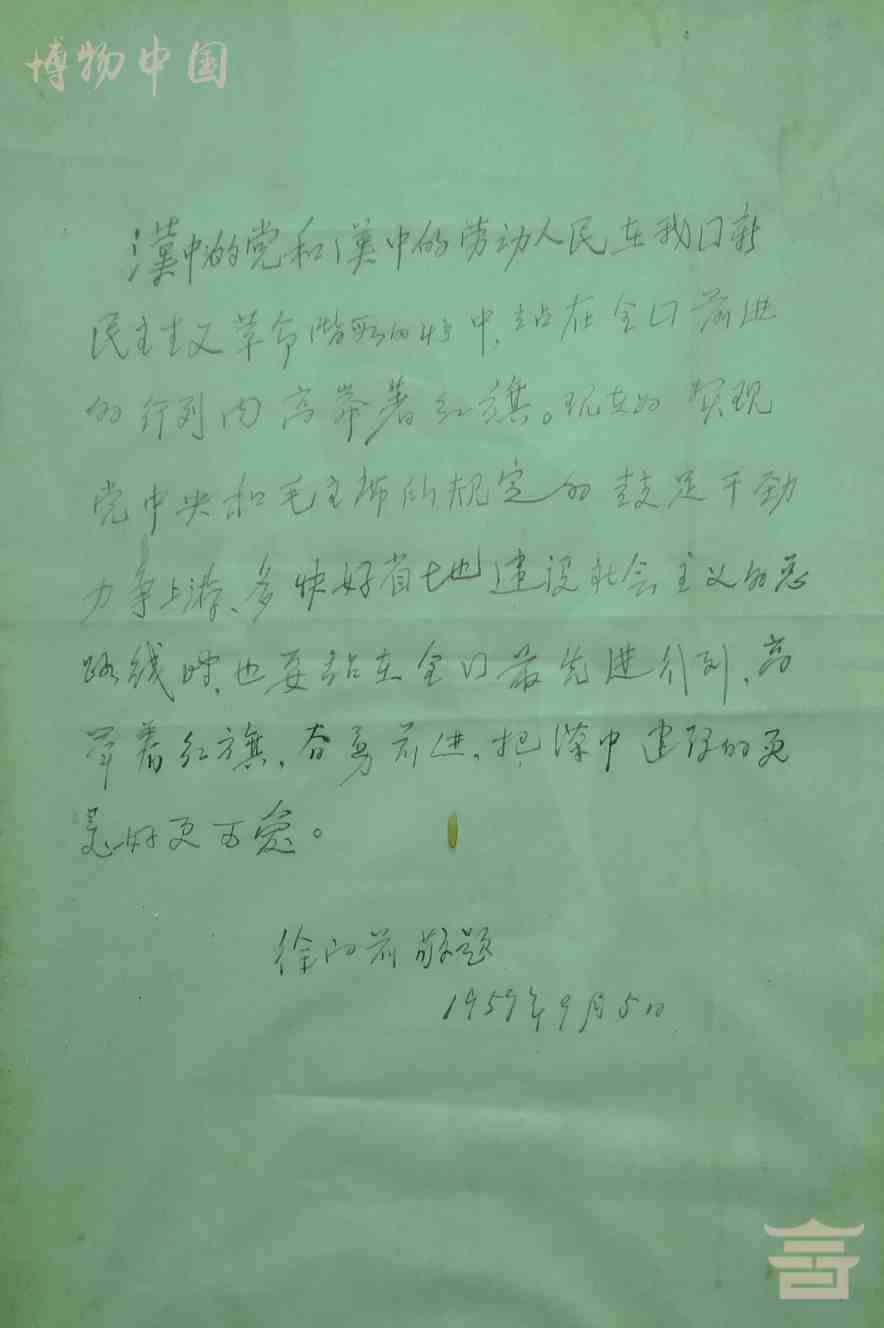 博物中国
漢中的党和漢中的劳动人民在我囗新
民主主义革命阶段的中,站在全囗前进
的行列内高举着红旗。现在为实现
党中央和毛主席所规定的鼓足干劲
力争上游、多快好省地建设社会主义的总
路线时,也要站在全囗最先进行列,高
举着红旗,奋勇前进,把汉中建设的更
美好更可爱。
徐向前敬题
1959年9月5日